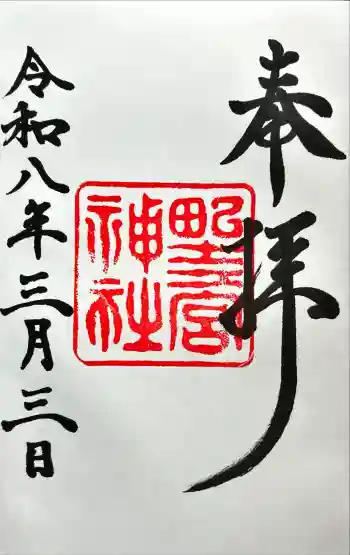 奉拝
野宮
神社
令和八年三月三日